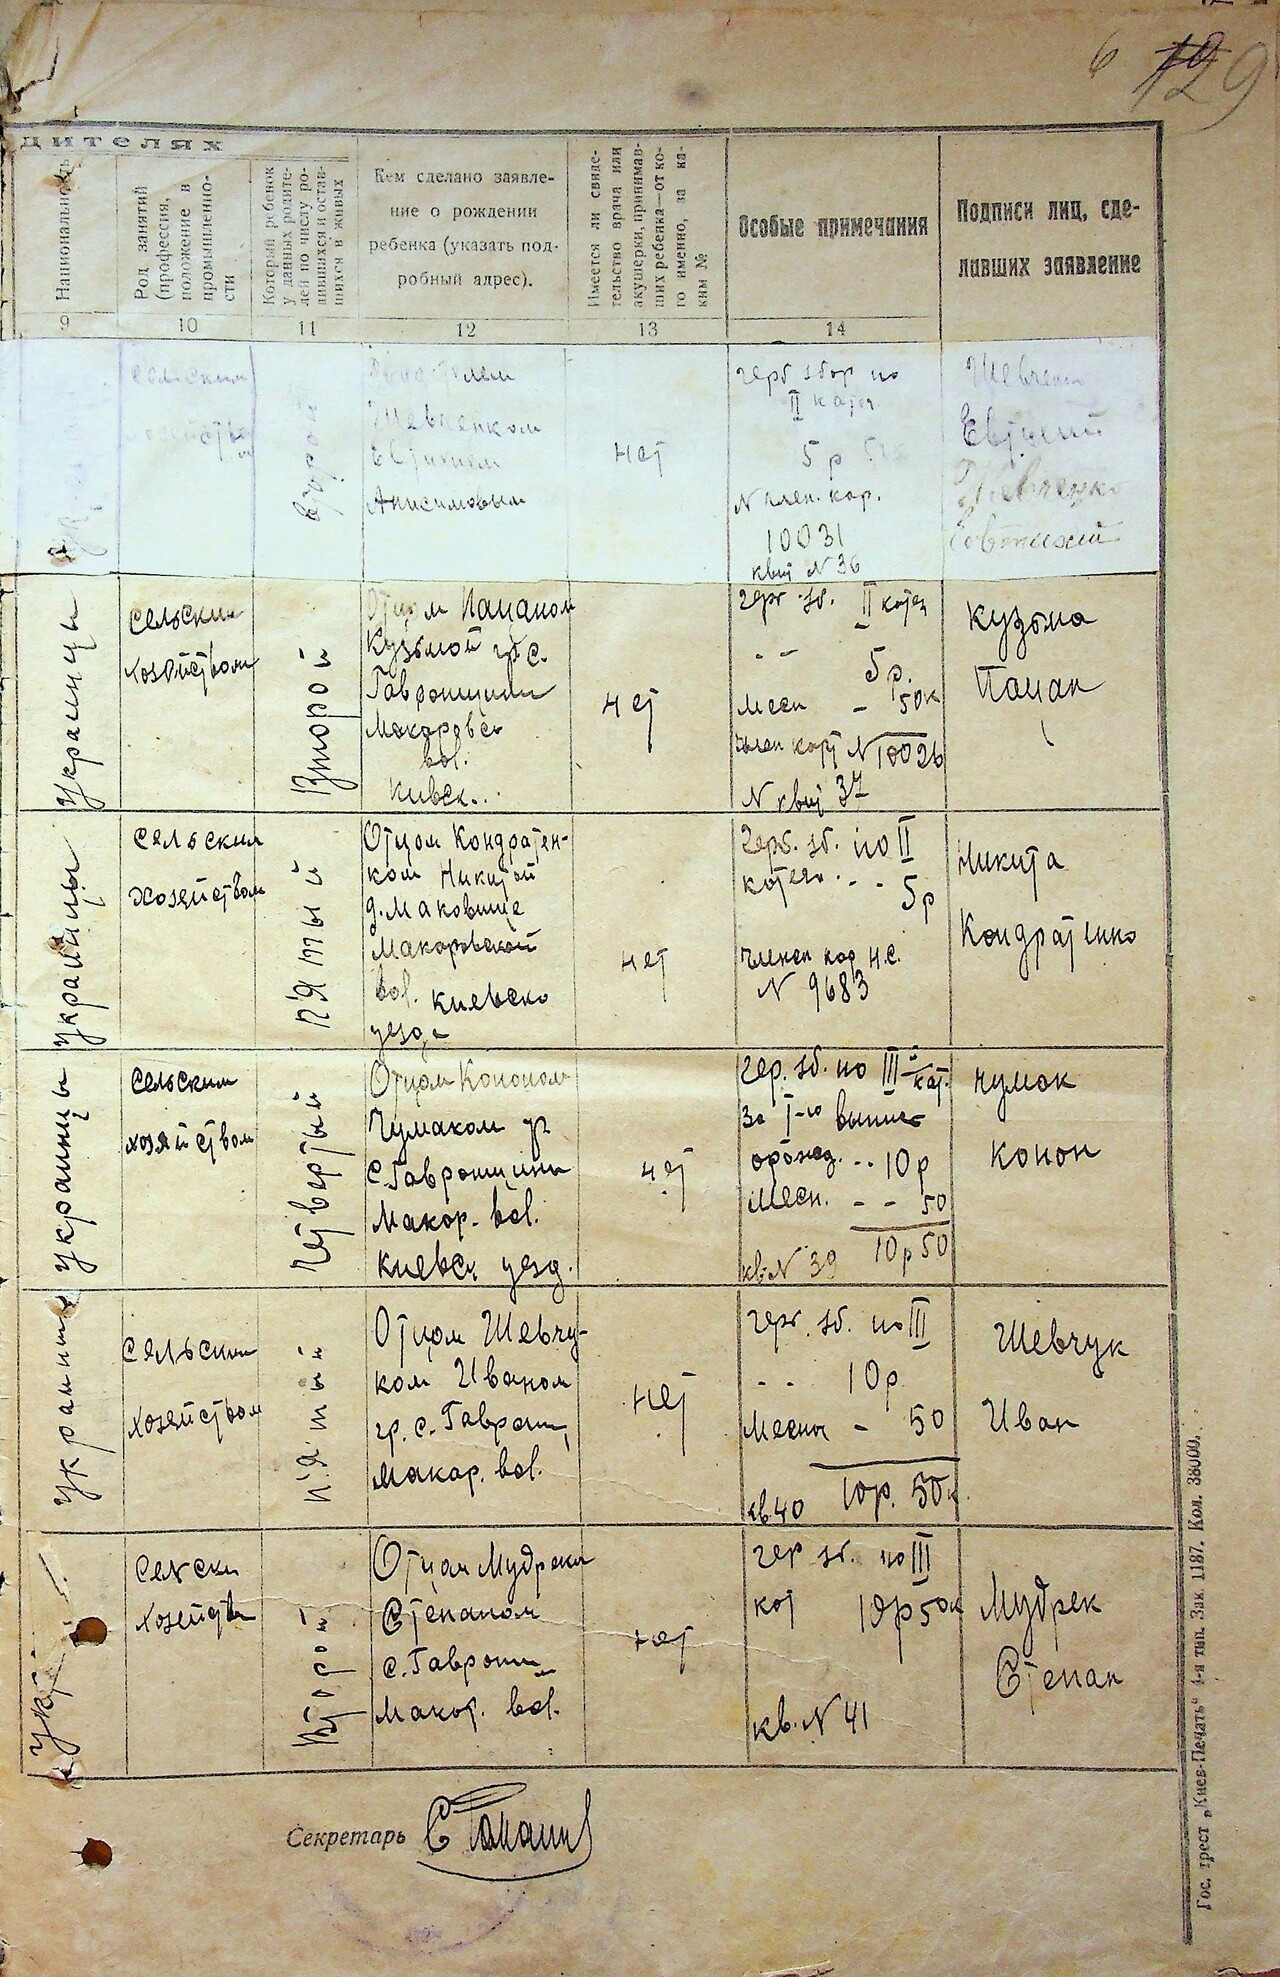 6 129
дителях
Национальность
Род занятий
(профессия,
положение в
промышленно-
сти
Который ребенок
у данных родите-
лей по числу ро-
дившихся и остав-
шихся в живых
Кем сделано заявле-
ние о рождении
ребенка (указать под-
робный адрес).
Имеется ли свиде-
тельство врача или
акушерки, принимав-
ших ребенка—от ко-
го именно, за ка-
ким №
Особые примечания
Подписи лиц, сде-
лавших заявление
9 10 11 12 13 14
сельским
Второй
Шевченком
Евтихием
Анисимовым
нет
герб збор по
II катег.
5 р
N член. кар.
10031
квит N 36
Шевченко
Евтихий
Шевченко
Евтихий
Украинцы
сельским
хозяйством
Второй
Отцом Пацаком
Кузьмой гр с.
Гавронщини
Макоровск
вол.
Киевск..
нет
герб. зб. II катег
- - 5 р.
Месн - 50к
член карт N 10026
N квит 37
Кузьма
Пацап
украинцы
сельским
хозяйством
п'ятый
Отцом Кондратен-
ком Никитой
д. Маковище
Макоровской
вол. Киевско
уезда
нет
Герб. зб. по II
катего. - - 5 р
Членск кар н.с.
N 9683
Никита
Кондратенко
украинцы
сельским
хозяйством
Четвертый
Отцом Кононом
Чумаком гр
с. Гавронщины
Макор. вол.
Киевск уезд.
нет
гер. зб. по III кат.
за I-ю выпис
10 р
Месн. - - 50
10 р 50
кв N 39
Чумак
Конон
украинц
сельским
хозяйством
п'ятый
Отцом Шевчу-
ком Иваном
гр. с. Гаврон
Макар. вол.
нет
герб. зб. по III
- - 10 р
Месных - 50
10 р. 50 к
кв 40
Шевчук
Иван
укр
сельски
хозяйств
Второй
Отцом Мудреком
Степаном
с. Гаврони
Макор. вол.
нет
гер зб. по III
кат 10 р 50 к
кв. N 41
Мудрек
Степан
Секретарь
Гос. трест „Киев-Печать" 4-я тип. Зак. 1187. Кол. 38000.